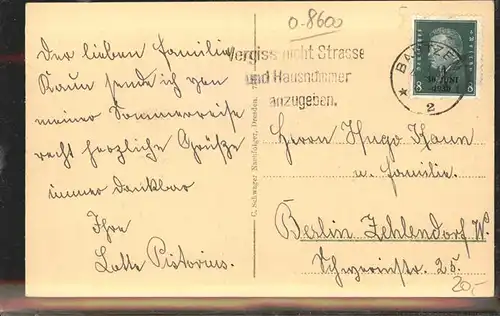 0-8600
Der lieben Familie
Kaun sende ich von
meiner Sommerreise
recht herzliche Grüße
immer dankbar
Ihre
Lotte Pistorius.
C. Schwager Nachfolger, Dresden.
Vergiss nicht Strasse
und Hausnummer
anzugeben.
BAUTZEN
2
30. JUNI
1930
8 8
Herrn Hugo Kaun
u. Familie.
Berlin Zehlendorf W.
Schwerinstr. 25.
20,-